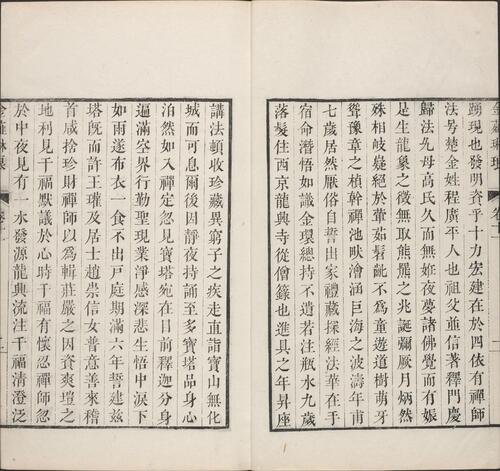 踴現也發明資乎十力宏建在於四依有禪師
法号楚金姓程廣平人也祖父並信著釋門慶
歸法允母高氏久而無姙夜夢諸佛覺而有娠
是生龍象之徵無取熊羆之兆誕彌厥月炳然
殊相岐嶷絕於葷茹髫齔不為童遊道樹萌牙
聳豫章之楨幹禪池畎澮涵巨海之波濤年甫
七歲居然厭俗自誓出家禮藏探經法華在手
宿命潛悟如識金環總持不遺若注瓶水九歲
落髮住西京龍興寺從僧籙也進具之年昇座
講法頓收珍藏異窮子之疾走直詣寶山無化
城而可息爾後因靜夜持誦至多寶塔品身心
泊然如入禪定忽見寶塔宛在目前釋迦分身
遍滿空界行勤聖現業淨感深悲生悟中淚下
如雨遂布衣一食不出戸庭期滿六年誓建兹
塔既而許王瓘及居士趙崇信女普意善來稽
首咸捨珍財禪師以為輯莊嚴之因資爽塏之
地利見千福默議於心時千福有懷忍禪師忽
於中夜見有一水發源龍興流注千福清澄泛